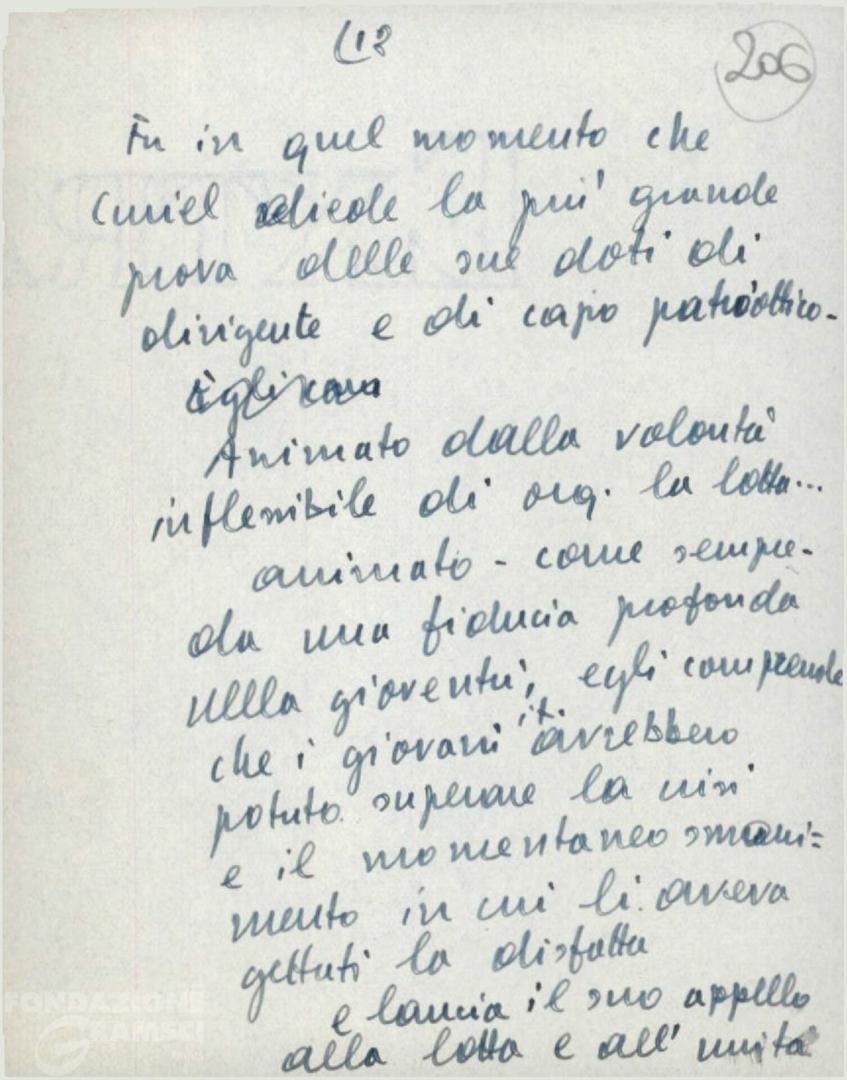 (18
206
Fu in quel momento che
Curiel diede la piu' grande
prova delle sue doti di
dirigente e di capo patriottico-
Egli
Animato dalla volontà
inflessibile di org. la lotta...
animato - come sempre-
da una fiducia profonda
nella gioventu', egli comprende
che i giovani it. avrebbero
potuto superare la crisi
e il momentaneo smarri=
mento in cui li aveva
gettati la disfatta
e lancia il suo appello
alla lotta e all' unità
FONDAZIONE
GRAMSCI